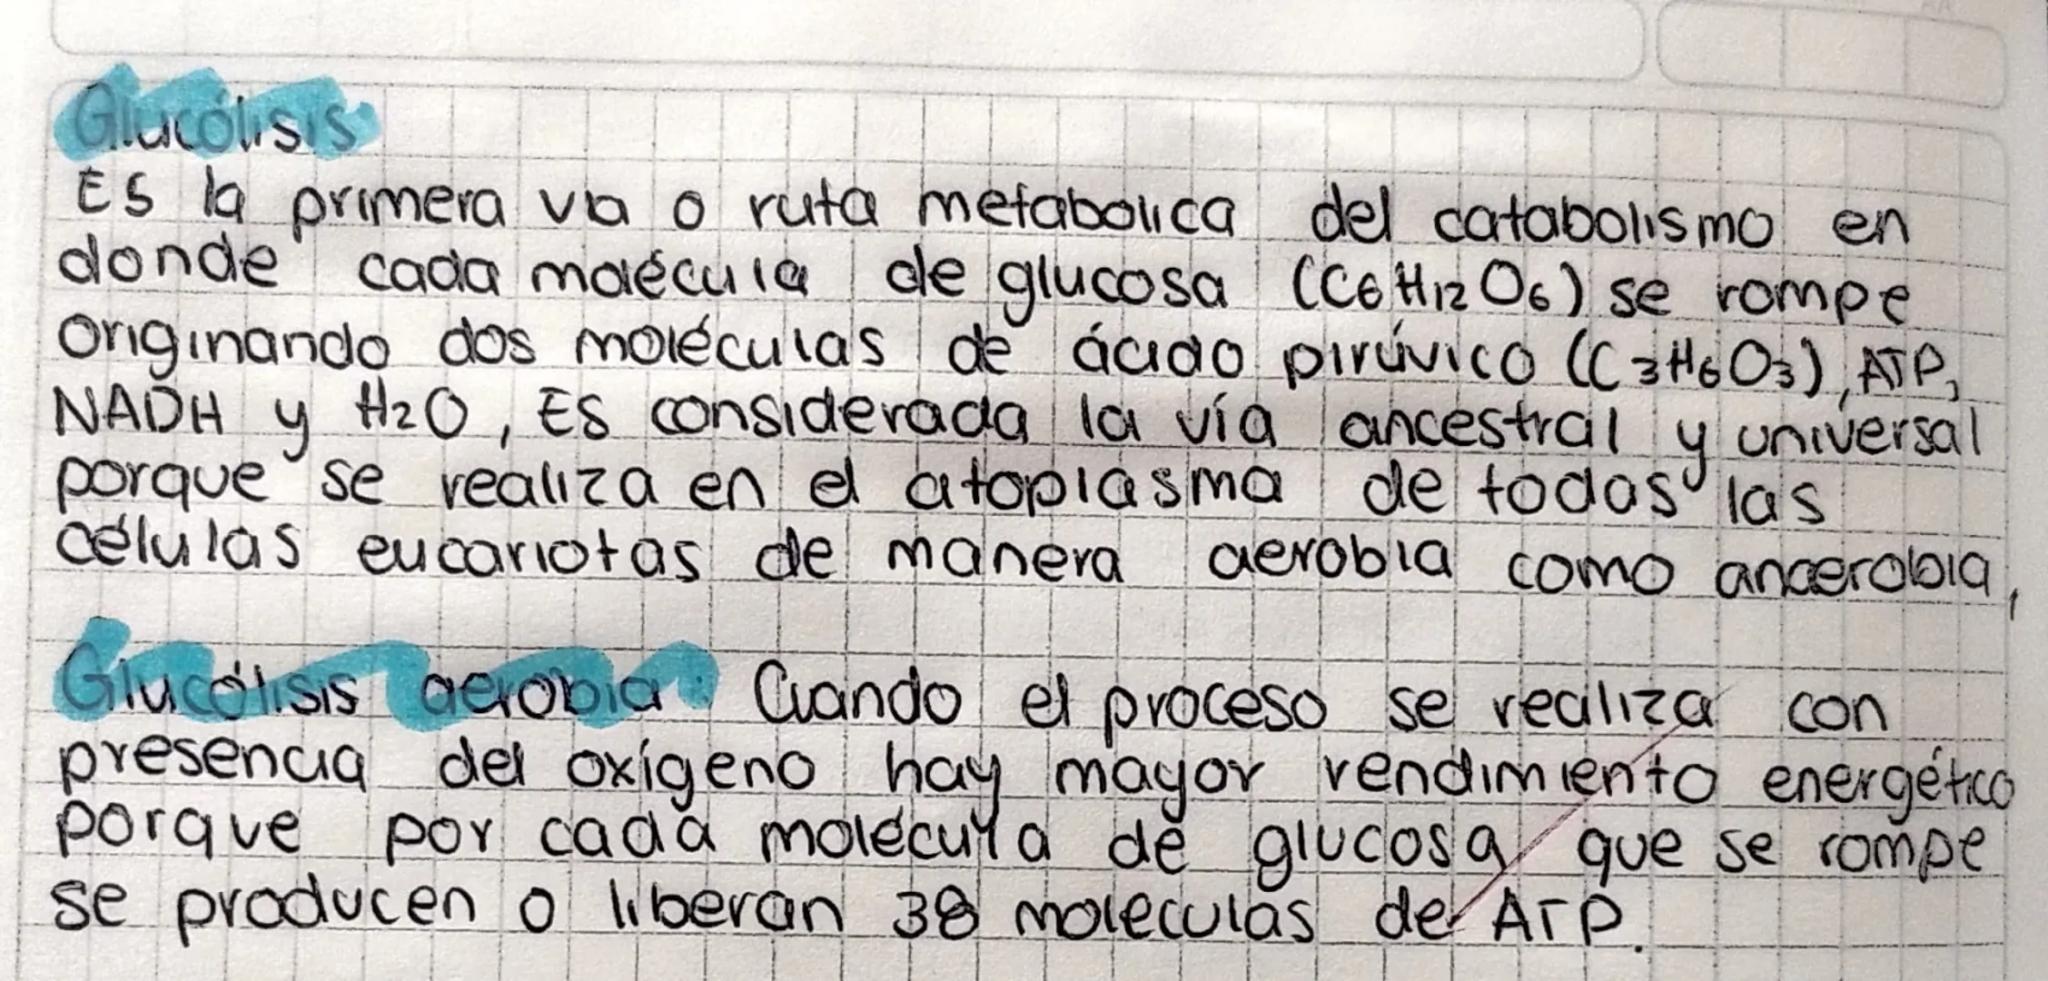 Glucólisis
Es la primera via o ruta metabolica del catabolismo en
donde cada molécula de glucosa (C6H12O6) se rompe
originando dos moléculas de ácido pirúvico (C3H6O3), ATP,
NADH y H2O, Es considerada la vía ancestral y universal
porque se realiza en el citoplasma de todas las
células eucariotas de manera aerobia como anaerobia,
Glucólisis aerobia: Cuando el proceso se realiza con
presencia del oxígeno hay mayor rendimiento energético
porque por cada molécula de glucosa que se rompe
se producen o liberan 38 moleculas de ATP.